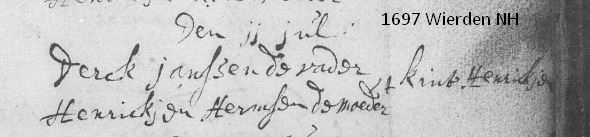 1697 Wierden NH
Den 11 jul
Derck janssen de vader
't kint Henrickjen
Henrickjen Hermsen de moeder